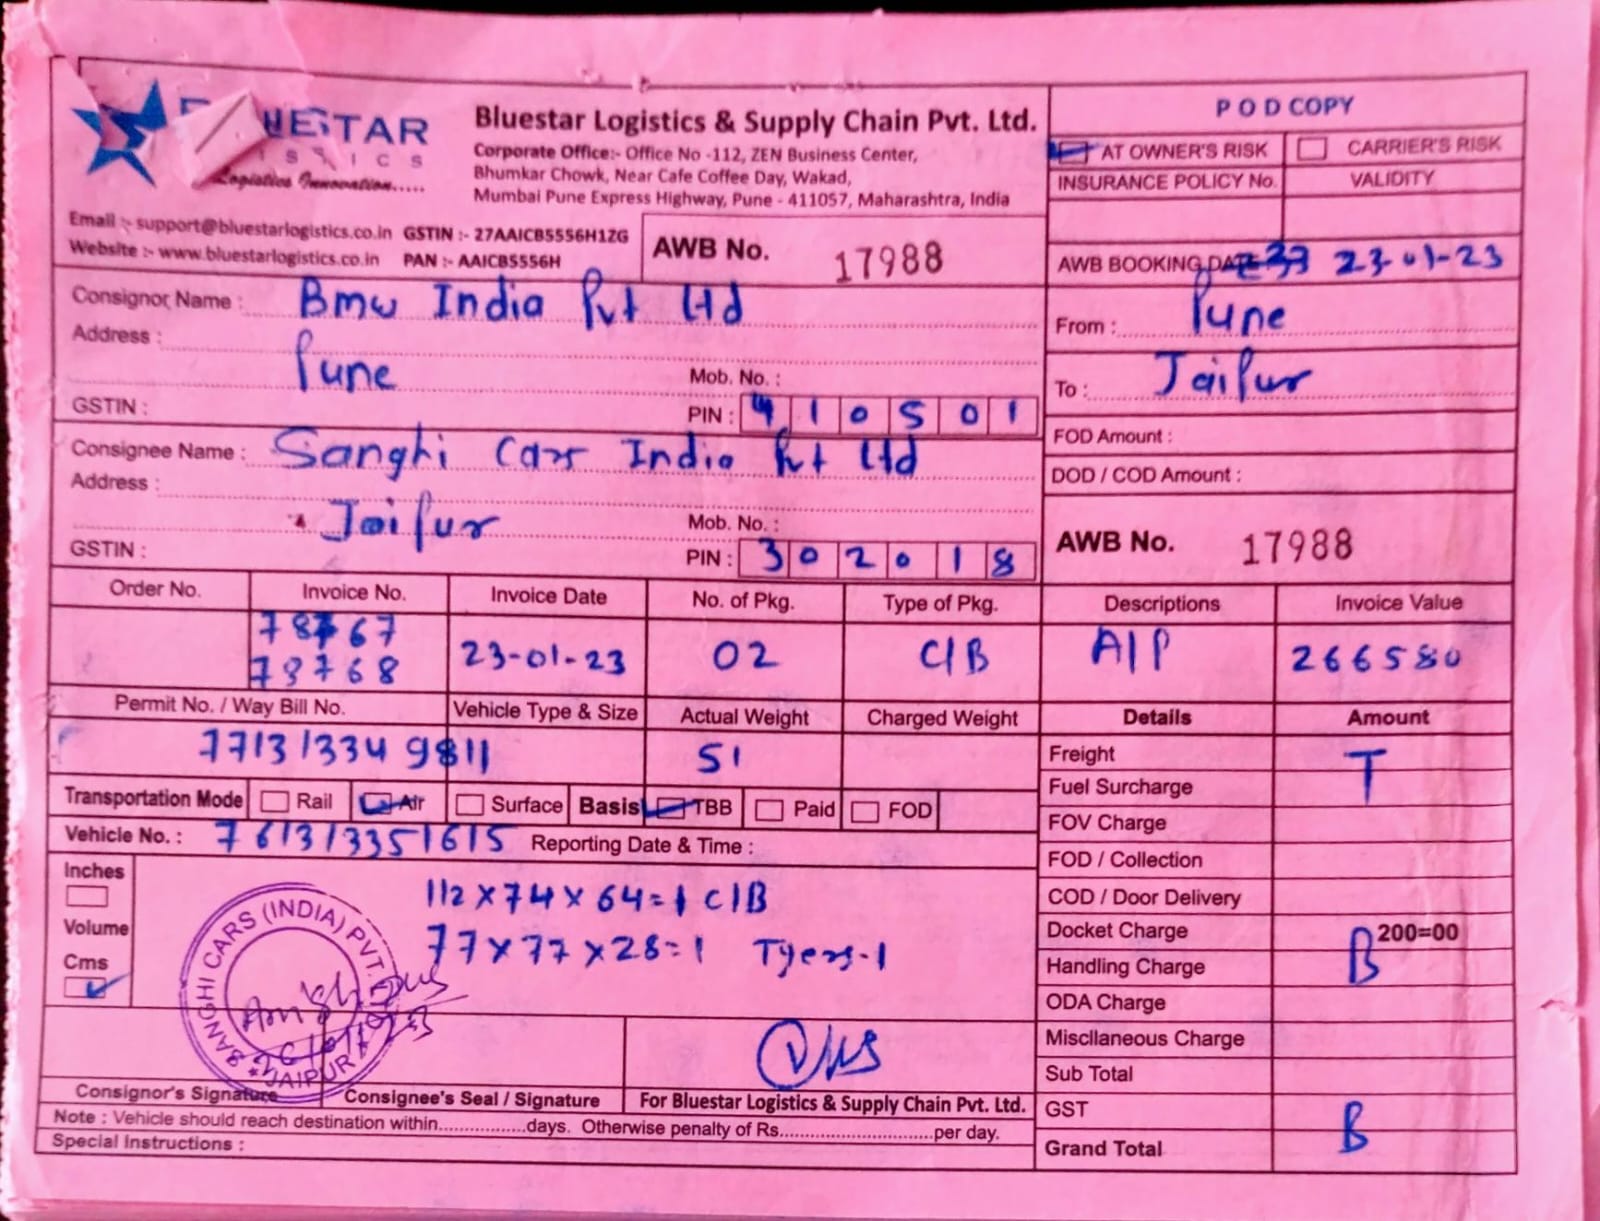 BLUESTAR
Logistics Innovation.....
Bluestar Logistics & Supply Chain Pvt. Ltd.
Corporate Office:- Office No -112, ZEN Business Center,
Bhumkar Chowk, Near Cafe Coffee Day, Wakad,
Mumbai Pune Express Highway, Pune - 411057, Maharashtra, India
Email :- support@bluestarlogistics.co.in GSTIN :- 27AAICB5556H1ZG
Website :- www.bluestarlogistics.co.in PAN :- AAICB5556H
AWB No. 17988
POD COPY
AT OWNER'S RISK CARRIER'S RISK
INSURANCE POLICY No. VALIDITY
AWB BOOKING DATE 23-01-23
Consignor Name : Bmw India Pvt Ltd
Address :
Pune
Mob. No. :
GSTIN : PIN : 410501
From : Pune
To : Jaipur
Consignee Name : Sanghi Cars India Pvt Ltd
Address :
Jaipur
Mob. No. :
GSTIN : PIN : 302018
FOD Amount :
DOD / COD Amount :
AWB No. 17988
Order No. Invoice No. Invoice Date No. of Pkg. Type of Pkg. Descriptions Invoice Value
78767
78768 23-01-23 02 C/B A/P 266580
Permit No. / Way Bill No. Vehicle Type & Size Actual Weight Charged Weight Details Amount
771313349811 51
Transportation Mode Rail Air Surface Basis TBB Paid FOD
Vehicle No. : 761313351615 Reporting Date & Time :
Inches
Volume
Cms
112 x 74 x 64 = 1 C/B
77 x 77 x 28 = 1 Tyers-1
SANGHI CARS (INDIA) PVT.
JAIPUR
Freight T
Fuel Surcharge
FOV Charge
FOD / Collection
COD / Door Delivery
Docket Charge 200=00
Handling Charge B
ODA Charge
Miscllaneous Charge
Sub Total
GST B
Grand Total
Consignor's Signature Consignee's Seal / Signature For Bluestar Logistics & Supply Chain Pvt. Ltd.
Note : Vehicle should reach destination within................days. Otherwise penalty of Rs..............................per day.
Special Instructions :